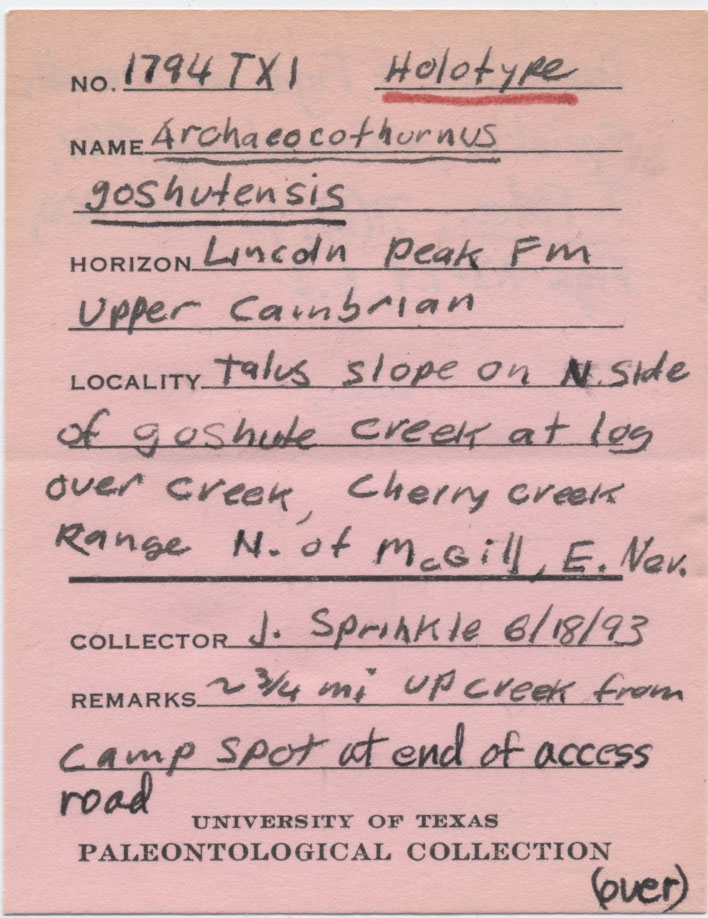 NO. 1794TX1 Holotype
NAME Archaeocothurnus
goshutensis
HORIZON Lincoln Peak Fm
Upper Cambrian
LOCALITY Talus slope on N. side
of goshute creek at log
over creek, Cherry creek
Range N. of McGill, E. Nev.
COLLECTOR J. Sprinkle 6/18/93
REMARKS ~ 3/4 mi up creek from
camp spot at end of access
road
UNIVERSITY OF TEXAS
PALEONTOLOGICAL COLLECTION
(over)